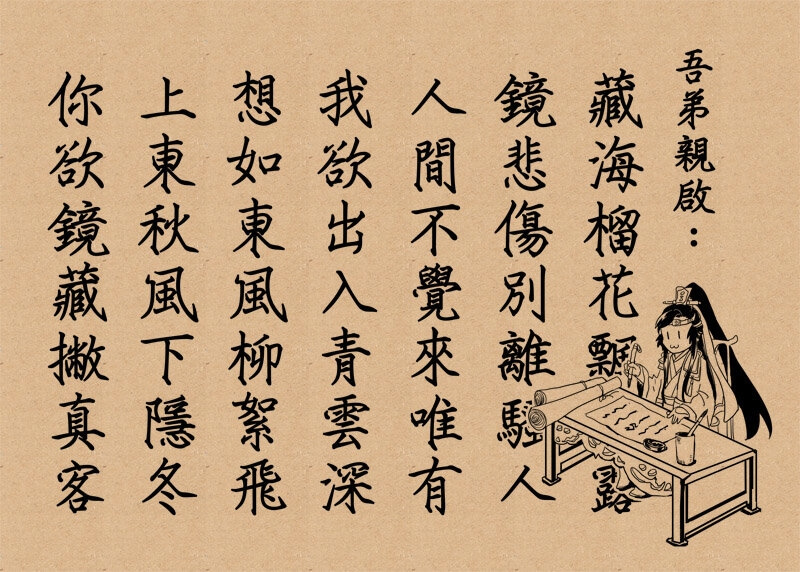 吾弟親啟：
藏海榴花飄露
鏡悲傷別離騷人
人間不覺來唯有
我欲出入青雲深
想如東風柳絮飛
上東秋風下隱冬
你欲鏡藏撇真客